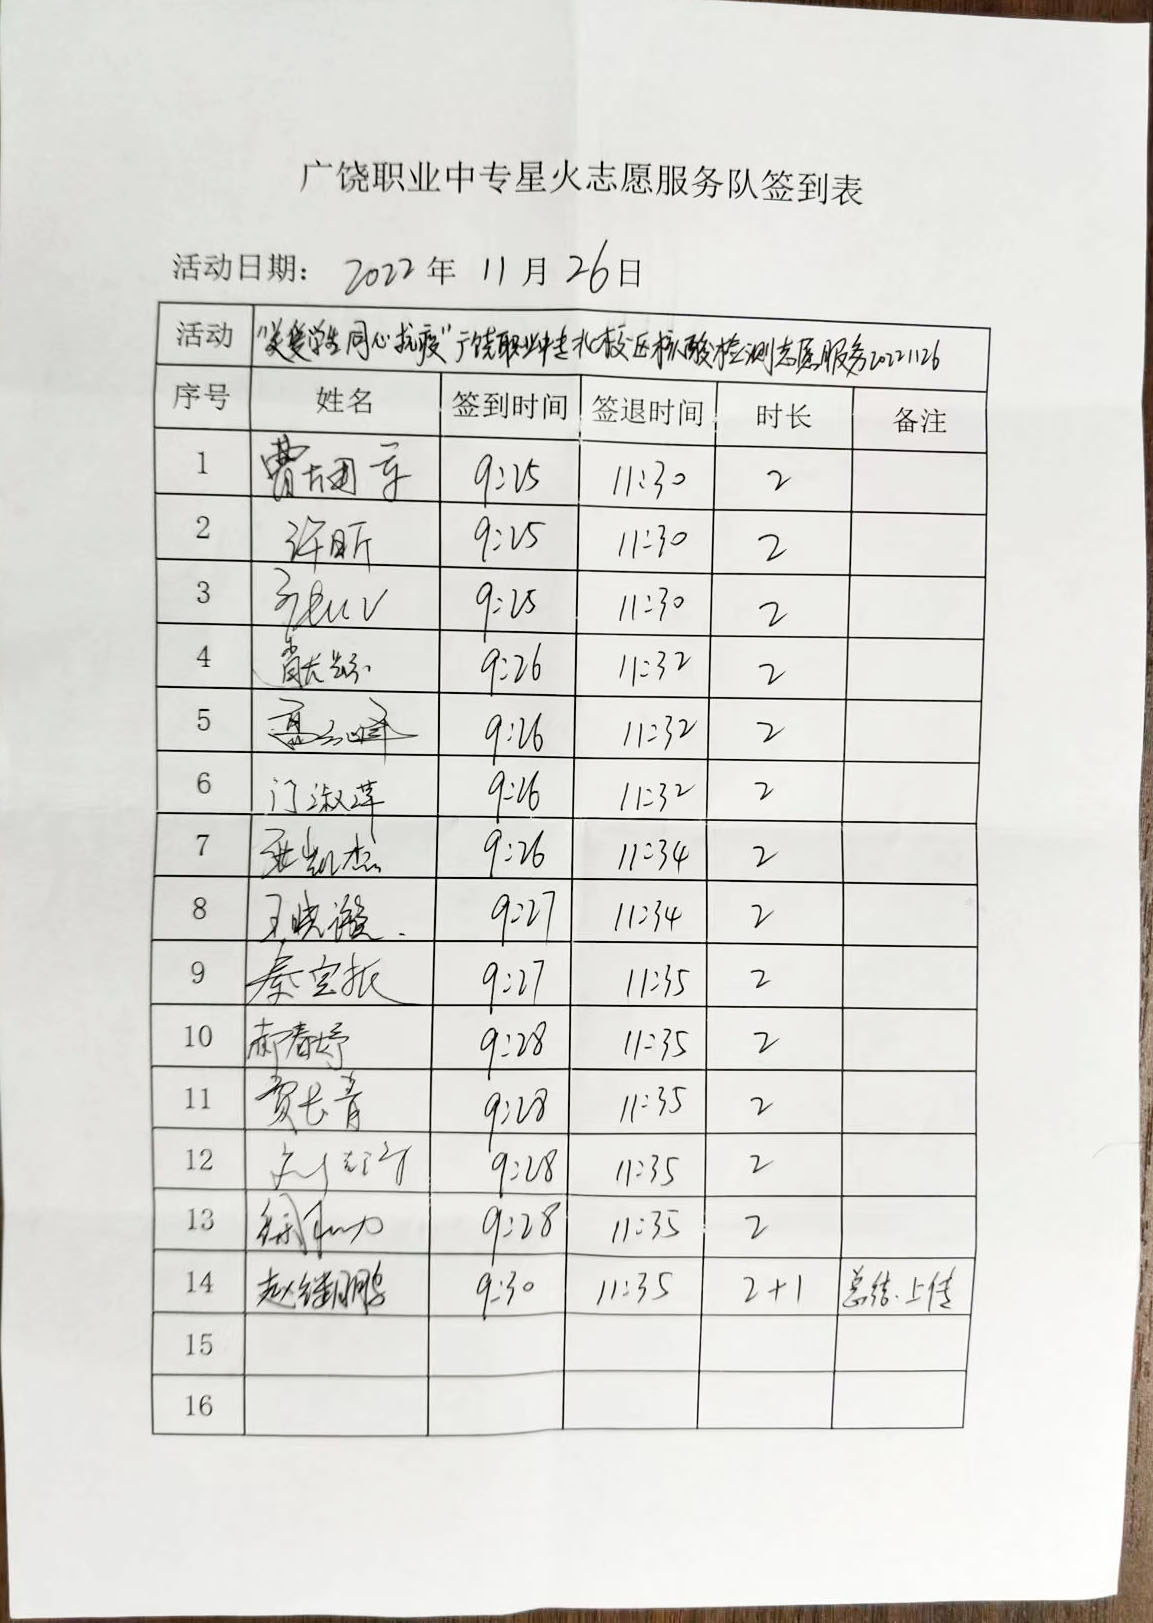 广饶职业中专星火志愿服务队签到表
活动日期： 2022 年 11 月 26 日
活动 "关爱学生 同心抗疫"广饶职业中专北校区核酸检测志愿服务20221126
序号 姓名 签到时间 签退时间 时长 备注
1 曹 9:25 11:30 2
2 许昕 9:25 11:30 2
3 9:25 11:30 2
4 9:26 11:32 2
5 9:26 11:32 2
6 门淑萍 9:26 11:32 2
7 张凯杰 9:26 11:34 2
8 王晓 9:27 11:34 2
9 秦宝振 9:27 11:35 2
10 郝春婷 9:28 11:35 2
11 贾长青 9:28 11:35 2
12 9:28 11:35 2
13 9:28 11:35 2
14 赵继鹏 9:30 11:35 2+1 总结.上传
15
16